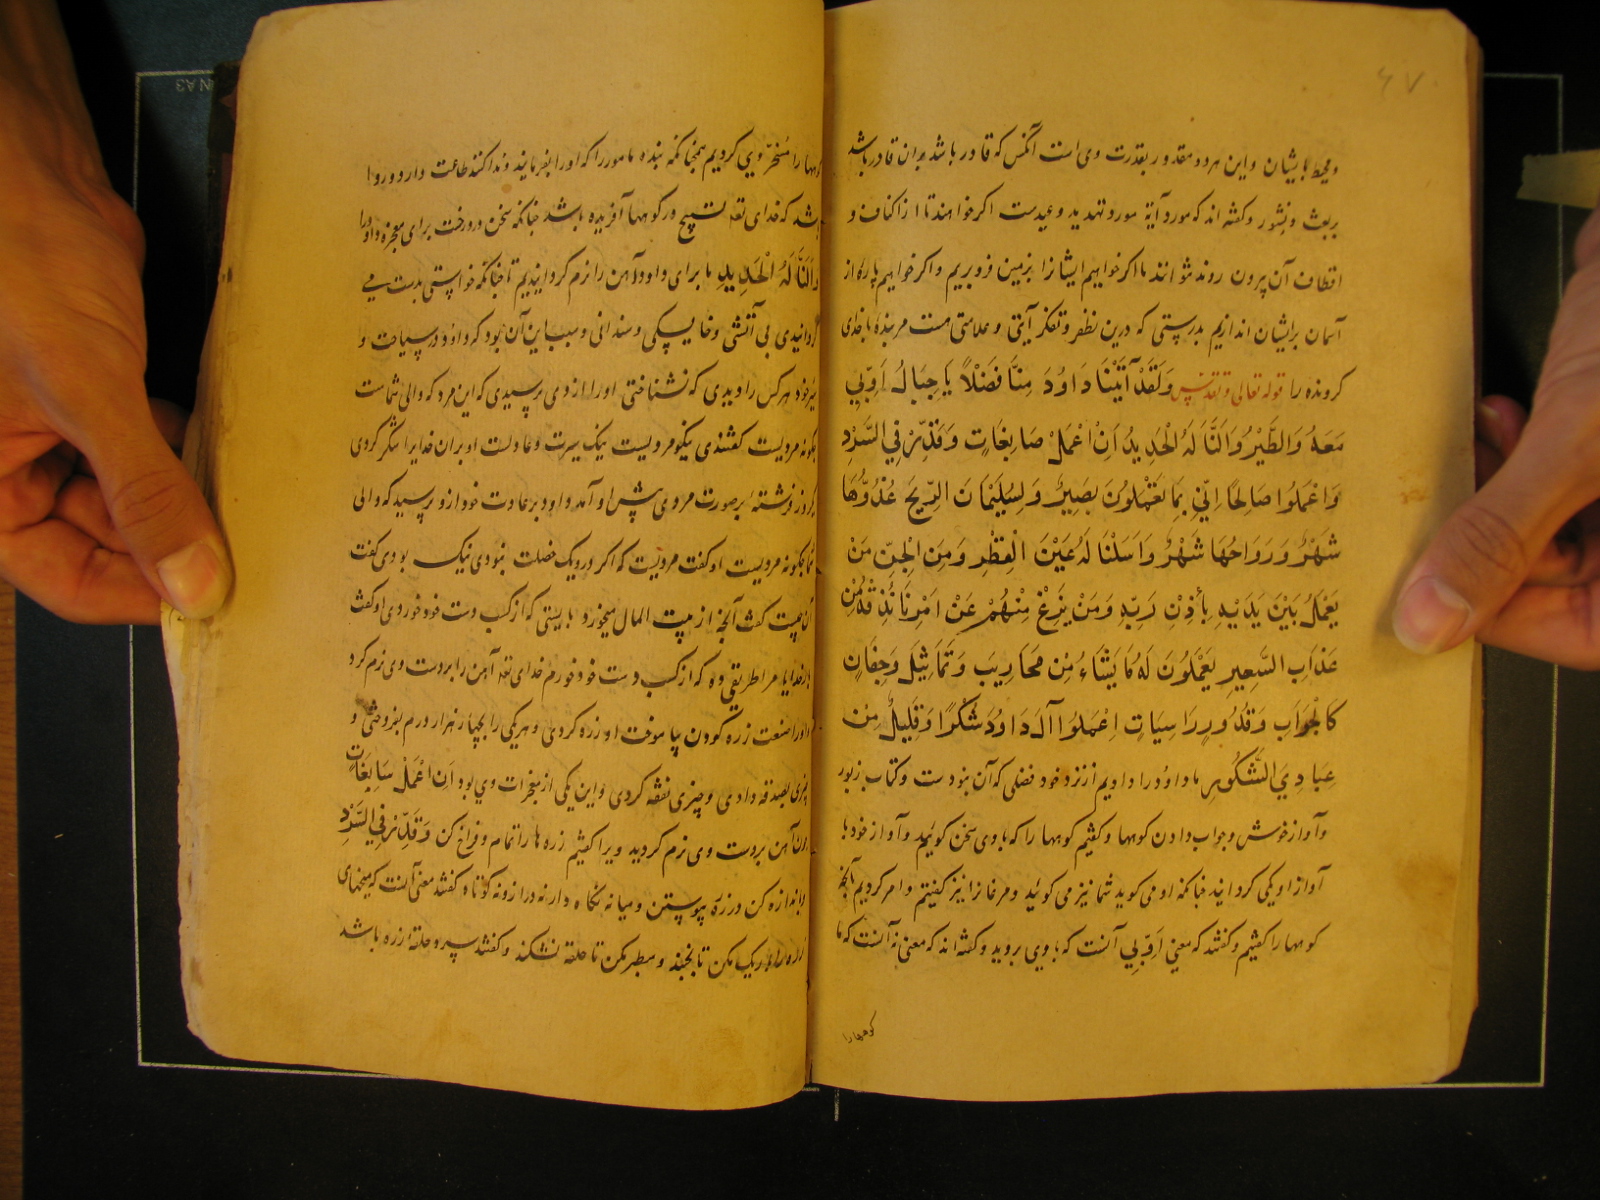 ۶۷
و محیط بایشان و این هر دو مقدور بقدرت وی است آنکس که قادر باشد بران قادر باشد
ببعث و نشور و کفته اند که مورد آیة مورد تهدید و وعیدست اکر خواهند تا از اکناف و
اقطاف آن بیرون روند نتوانند ما اکر خواهیم ایشانرا بزمین فرو بریم و اکر خواهیم پارۀ از
آسمان برایشان اندازیم بدرستی که درین نظر و تفکر آیتی و علامتی هست مر بندۀ با خدای
کرونده را قوله تعالی و تقدس وَلَقَدْ آتَيْنَا دَاوُدَ مِنَّا فَضْلًا يَا جِبَالُ اَوِّبِي
مَعَهُ وَالطَّيْرَ وَاَلَنَّا لَهُ الْحَدِيدَ اَنْ اعْمَلْ صَابِغَاتٍ وَقَدِّرْ فِي السَّرْدِ
وَاعْمَلُوا صَالِحًا اِنِّي بِمَا تَعْمَلُونَ بَصِيرٌ وَلِسُلَيْمَانَ الرِّيحَ غُدُوُّهَا
شَهْرٌ وَرَوَاحُهَا شَهْرٌ وَاَسَلْنَا لَهُ عَيْنَ الْقِطْرِ وَمِنَ الْجِنِّ مَنْ
يَعْمَلُ بَيْنَ يَدَيْهِ بِأِذْنِ رَبِّهِ وَمَنْ يَزِغْ مِنْهُمْ عَنْ اَمْرِنَا نُذِقْهُ مِنْ
عَذَابِ السَّعِيرِ يَعْمَلُونَ لَهُ مَا يَشَاءُ مِن مَحَارِيبَ وَتَمَاثِيلَ وَجِفَانٍ
كَالْجَوَابِ وَقُدُورٍ رَاسِيَاتٍ اِعْمَلُوا آلَ دَاوُدَ شُكْرًا وَقَلِيلٌ مِن
عِبَادِيَ الشَّكُورِ ما داؤد را دادیم از نزد خود فضلی که آن نبودست و کتاب زبور
و آواز خوش و جواب دادن کوهها و کفتیم کوهها را که با وی سخن کوئید و آواز خود با
آواز او یکی کردانید چنانکه او می کوید شما نیز می کوئید و مرغانرا نیز کفتیم و امر کردیم آنچه
کوهها را کفتیم و کفتند که معنی اَوِّبِي آنست که با وی بروید و کفته اند که معنی نه آنست که ما
کوهها را
کوهها را مسخّر وی کردیم همچنانکه بنده مامور را که او را بفرمایند و ندا کنند طاعت دارد و روا
باشد که خدای تعه تسبیح در کوهها آفریده باشد چنانکه سخن در درخت برای معجزه داود را
وَاَلَنَّا لَهُ الْحَدِيدِ ما برای داود آهن را نرم کردانیدیم تا چنانکه خواستی بدست می
کردانیدی بی آتشی و خایسکی و سندانی و سبب این آن بود که داود در سیاحت و
سَیر خود هر کس را دیدی که نشناختی او را از وی پرسیدی که این مرد که والی شماست
چکونه مردیست کفتندی نیکو مردیست نیک سیرت و عادلست او بران خدایرا شکر کردی
یکروز فرشته بر صورت مردی پیش او آمد داود بر عادت خود ازو پرسید که والی
شما چکونه مردیست او کفت مردیست که اکر درو یک خصلت نبودی نیک بودی کفت
آن چیست کفت آنچه از بیت المال میخورد بایستی که از کسب دست خود خوردی او کفت
بار خدایا مرا طریقی ده که از کسب دست خود خورم خدای تعه آهن را بر دست وی نرم کرد
و او را صنعت زره کردن بیاموخت او زره کردی و هر یکی را بچهار هزار درم بفروختی و
چیزی بصدقه دادی و چیزی نفقه کردی و این یکی از معجزات وی بود اَنِ اعْمَلْ سَابِغَاتٍ
چون آهن بر دست وی نرم کردید ویرا کفتیم زره ها را تمام و فراخ کن وَقَدِّرْ فِي السَّرْدِ
و اندازه کن در زره پیوستن و میانه نکاه دار نه دراز و نه کوتاه و کفتند معنی آنست که میخهای
زره را باریک مکن تا بجنبد و سطبر مکن تا حلقه نشکند و کفتند سرد حلقه زره باشد